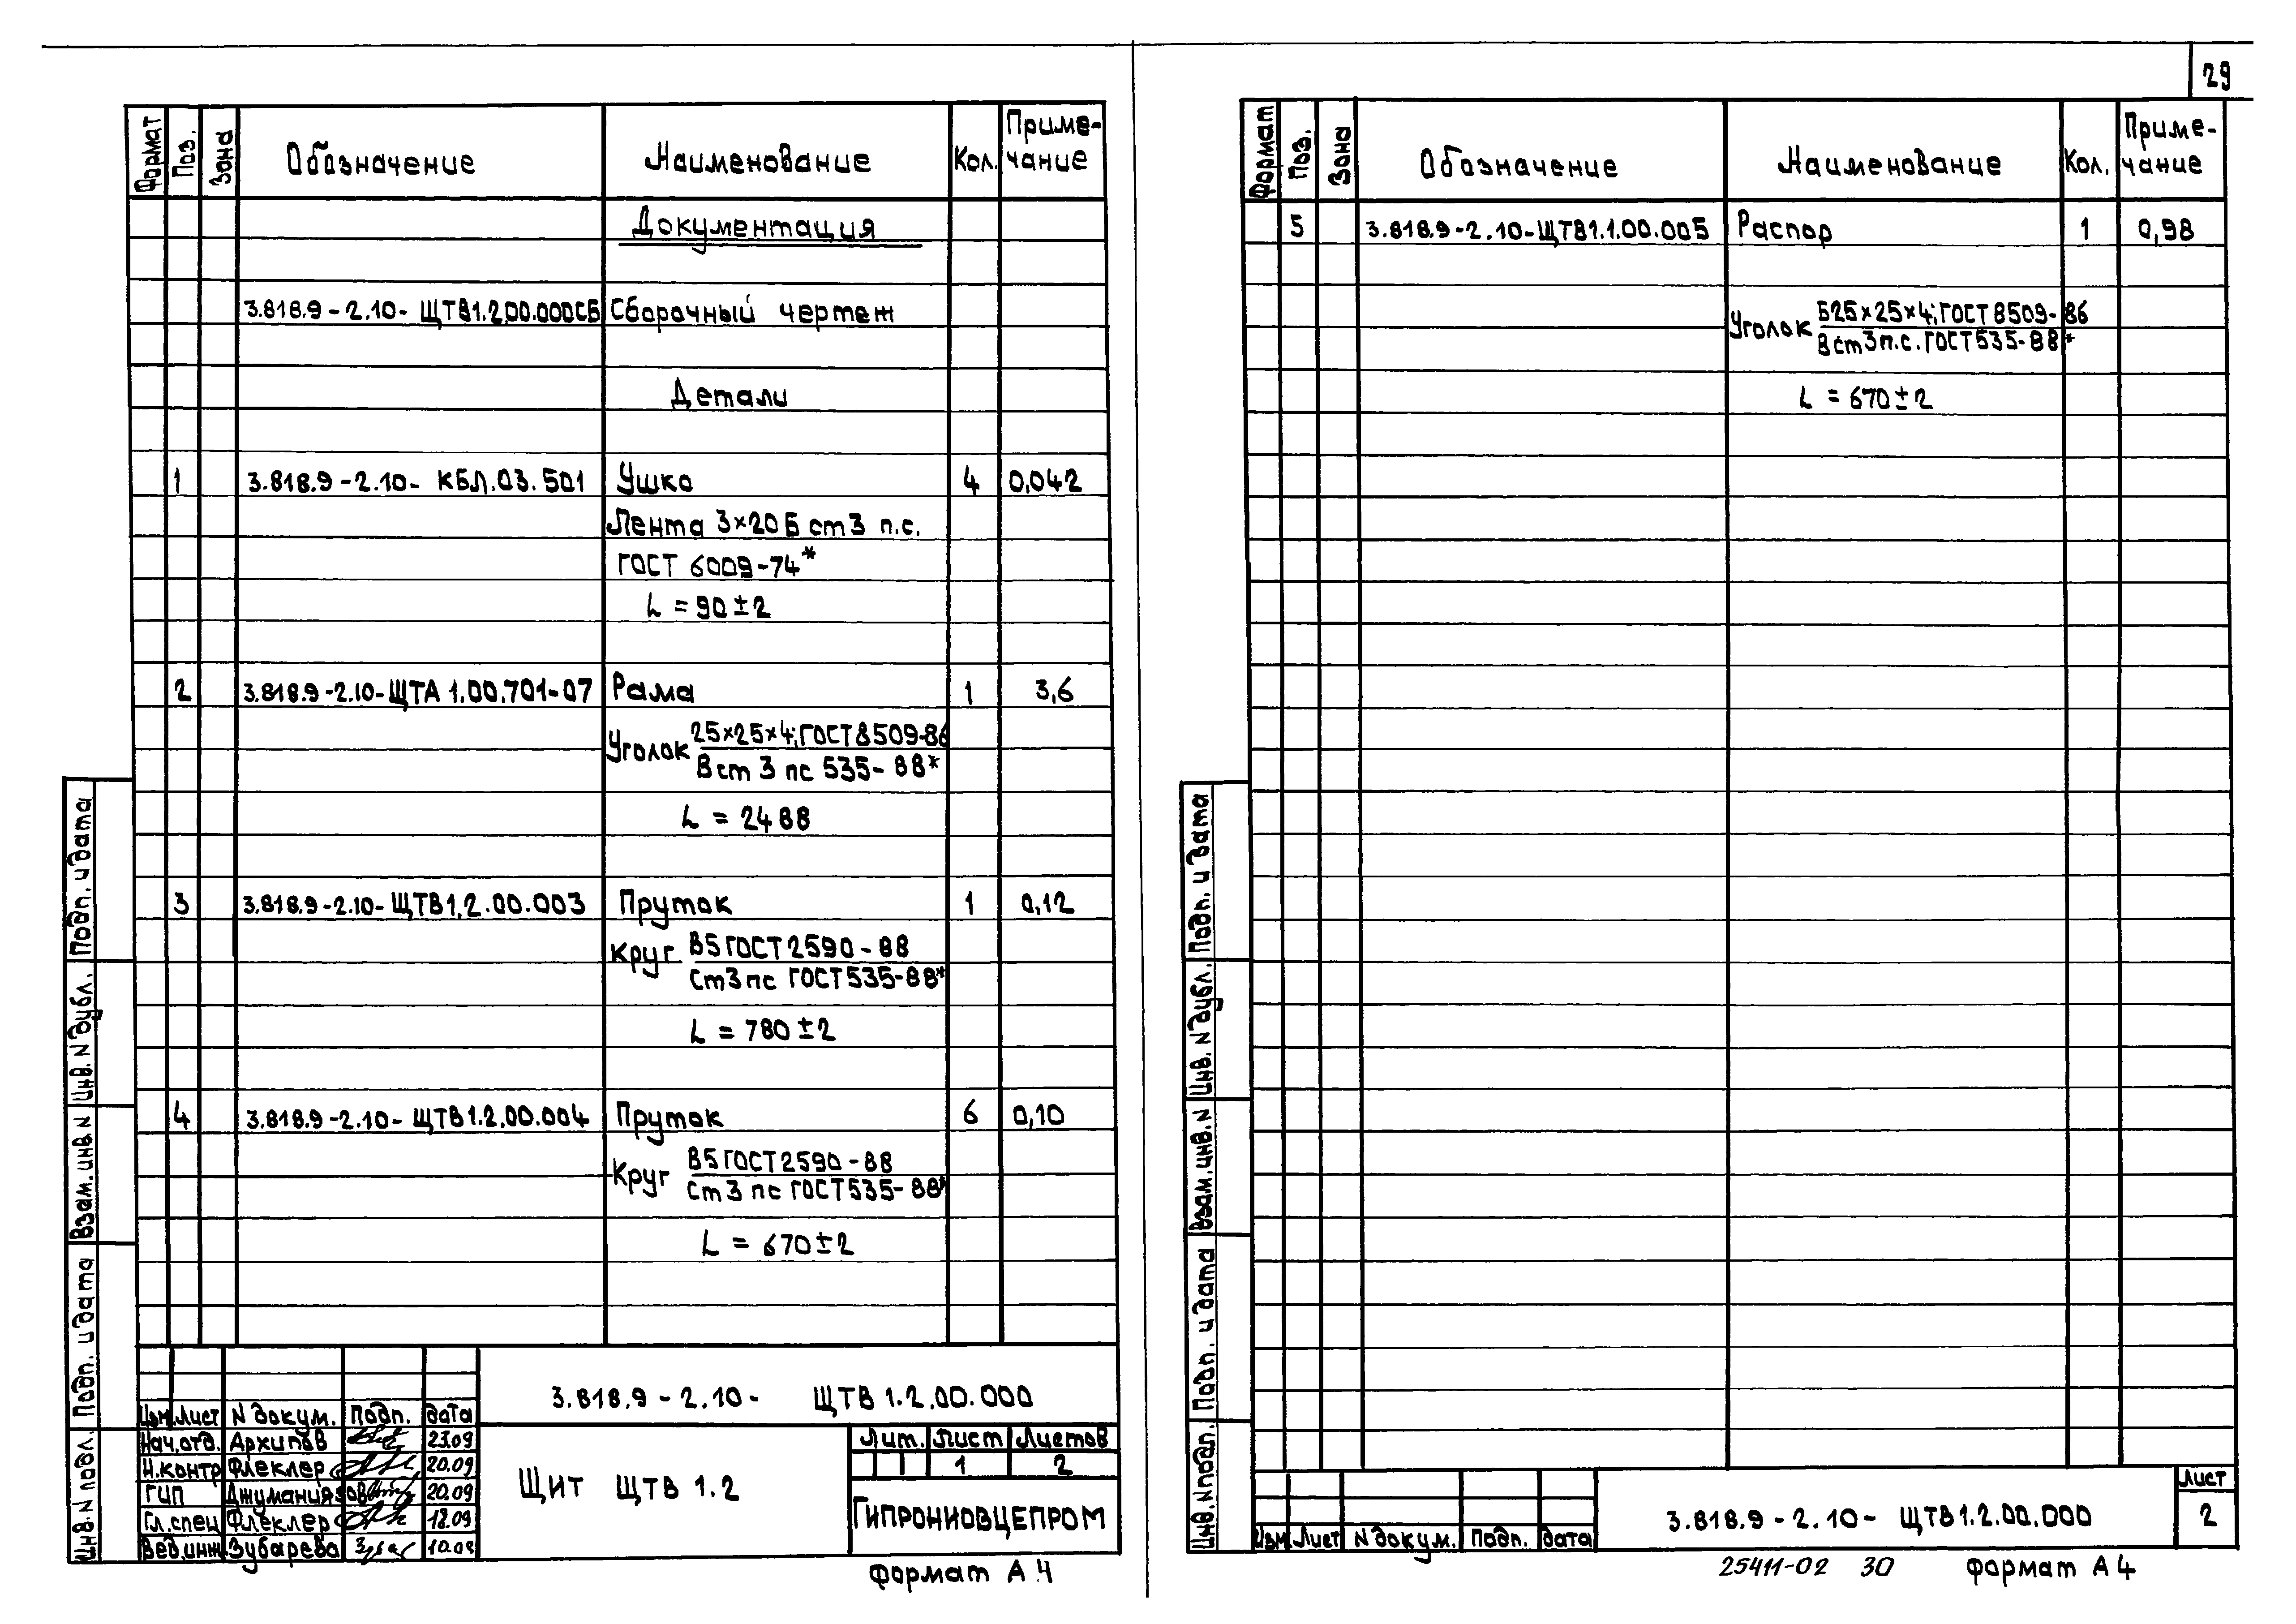 29
Формат Поз. Зона Обозначение Наименование Кол. Приме-
чание
Документация
3.818.9-2.10- ЩТВ1.2.00.000СБ Сборочный чертеж
Детали
1 3.818.9-2.10- КБЛ.03.501 Ушко 4 0,042
Лента 3×20 Б ст3 п.с.
ГОСТ 6009-74*
L = 90±2
2 3.818.9-2.10-ЩТА 1.00.701-07 Рама 1 3,6
Уголок 25×25×4; ГОСТ 8509-86
Вст 3 пс 535-88*
L = 2488
3 3.818.9-2.10-ЩТВ1.2.00.003 Пруток 1 0,12
Круг В5 ГОСТ 2590-88
Ст3пс ГОСТ 535-88*
L = 780±2
4 3.818.9-2.10- ЩТВ1.2.00.004 Пруток 6 0,10
Круг В5 ГОСТ 2590-88
Ст3 пс ГОСТ 535-88*
L = 670±2
3.818.9-2.10- ЩТВ 1.2.00.000
Изм. Лист N докум. Подп. дата
Нач.отд. Архипов 23.09
Н.контр Флеклер 20.09
ГИП Джуманиязов 20.09
Гл.спец Флеклер 12.09
Вед.инж. Зубарева 10.09
Щит ЩТВ 1.2
Лит. Лист Листов
1 2
ГИПРОНИОВЦЕПРОМ
Формат А4
Инв. N подл. Подп. и дата Взам. инв. N Инв. N дубл. Подп. и дата
Формат Поз. Зона Обозначение Наименование Кол. Приме-
чание
5 3.818.9-2.10-ЩТВ1.1.00.005 Распор 1 0,98
Уголок Б25×25×4; ГОСТ 8509-86
Вст3п.с. ГОСТ 535-88*
L = 670±2
Инв. N подл. Подп. и дата Взам. инв. N Инв. N дубл. Подп. и дата
Изм Лист N докум. Подп. дата
3.818.9-2.10- ЩТВ1.2.00.000
Лист
2
25411-02 30 Формат А4